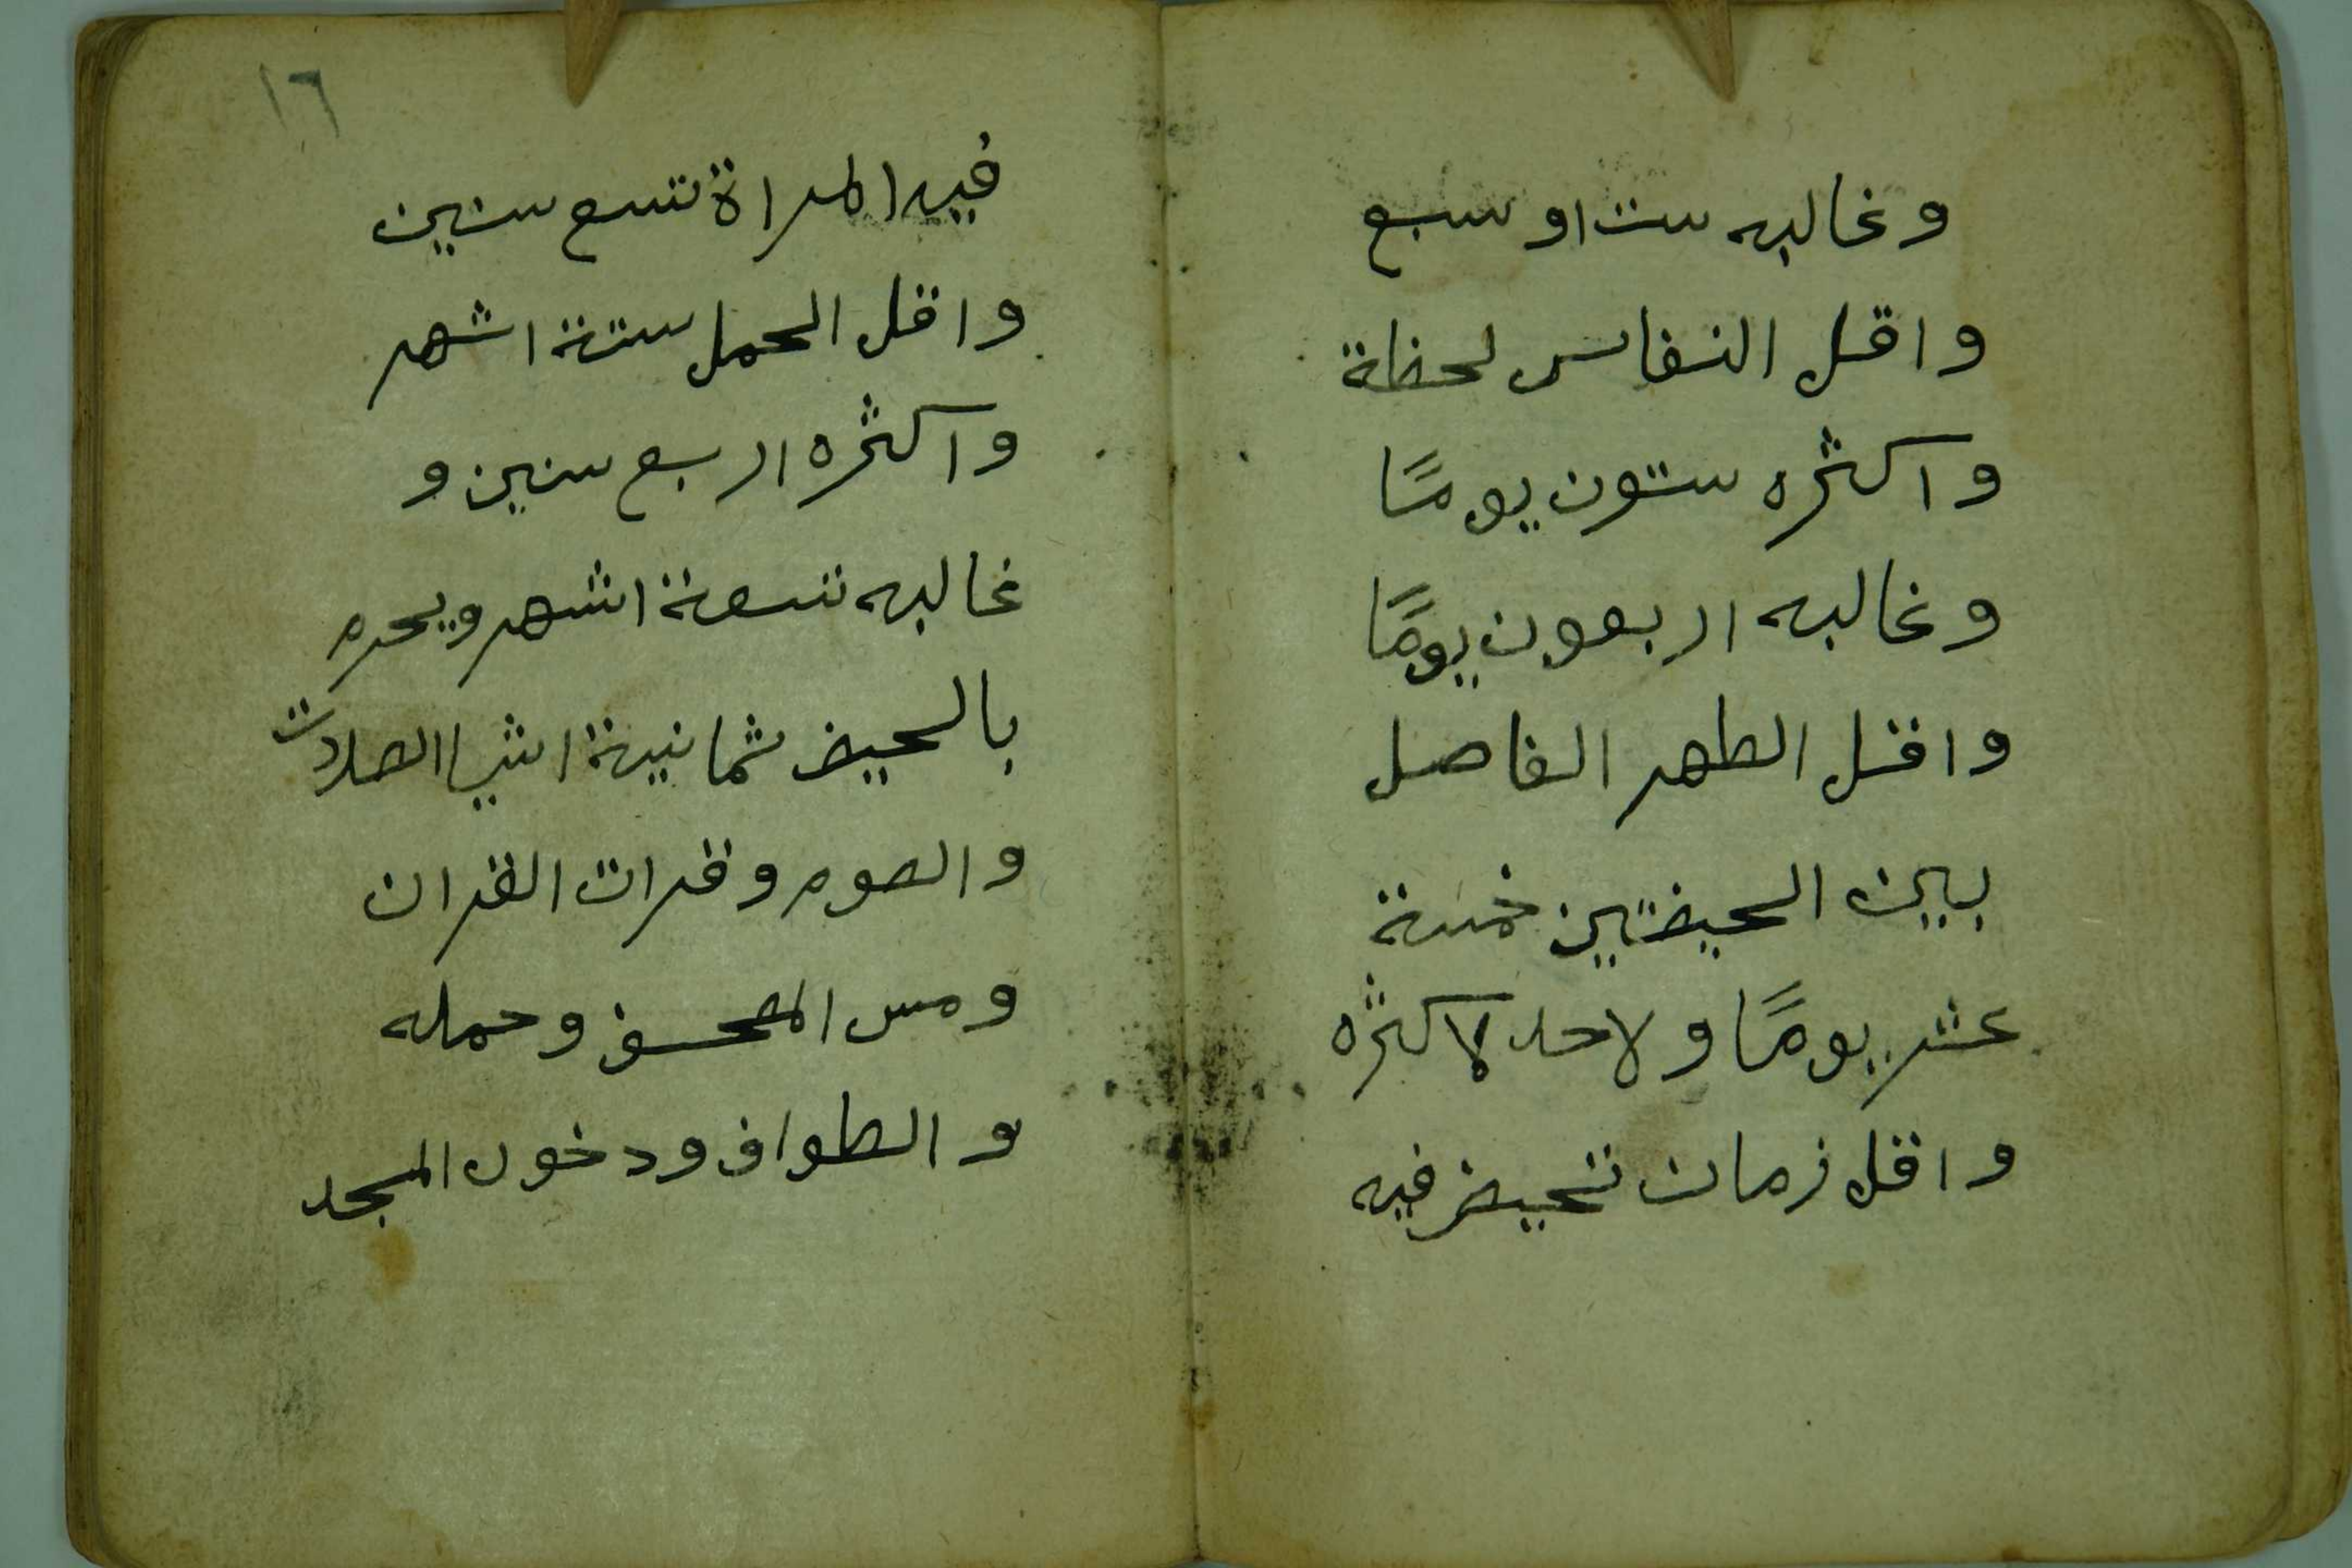 وغالبه ست او سبع
واقل النفاس لحظة
واكثره ستون يومًا
وغالبه اربعون يومًا
واقل الطهر الفاصل
بين الحيضتين خمسة
عشر يومًا ولاحد لاكثره
واقل زمان تحيض فيه
١٦
فيه المراة تسع سنين
واقل الحمل ستة اشهر
واكثره اربع سنين و
غالبه تسعة اشهر ويحرم
بالحيض ثمانية اشيا الصلات
والصوم وقرات القران
ومس المصحف وحمله
والطواف ودخول المسجد